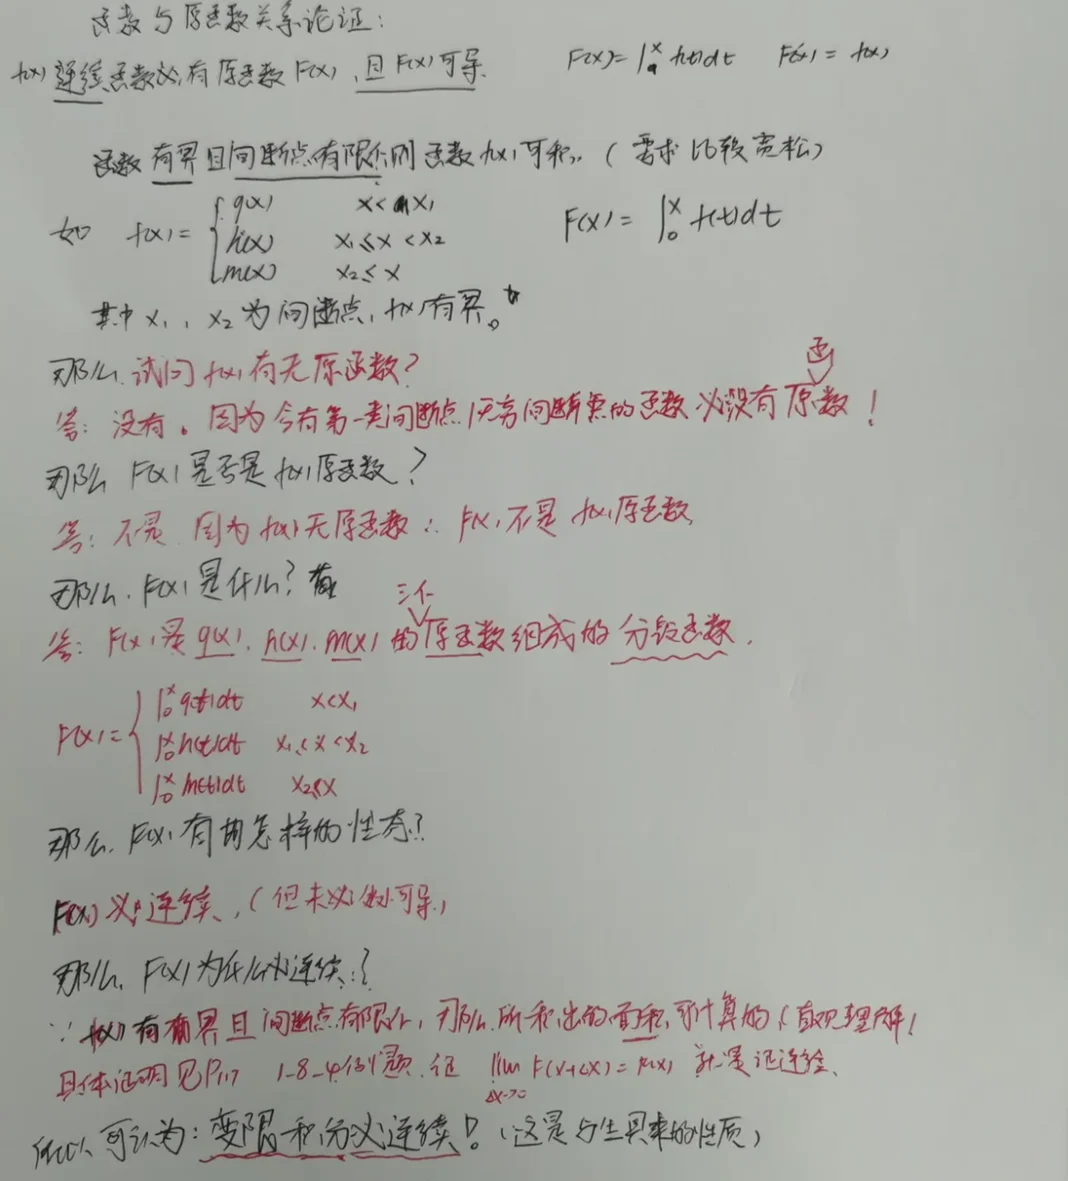 函数与原函数关系论证:
f(x)连续函数必有原函数F(x),且F(x)可导. F(x)=∫ₐˣf(t)dt F'(x)=f(x)
函数有界且间断点有限个,则函数f(x)可积.(需求比较宽松)
如 f(x)={ g(x) x<x₁
h(x) x₁≤x<x₂ F(x)=∫₀ˣf(t)dt
m(x) x₂≤x
其中x₁、x₂为间断点,f(x)有界。
那么.试问f(x)有无原函数?
答:没有。因为含有第一类间断点/无穷间断点的函数必没有原函数!
那么F(x)是否是f(x)原函数?
答:不是.因为f(x)无原函数∴F(x)不是f(x)原函数.
那么.F(x)是什么?
答:F(x)是g(x).h(x).m(x)的三个原函数组成的分段函数.
F(x)={ ∫₀ˣg(t)dt x<x₁
∫₀ˣh(t)dt x₁≤x<x₂
∫₀ˣm(t)dt x₂≤x
那么.F(x)有着怎样的性态?
F(x)必连续.(但未必可导)
那么.F(x)为什么必连续.?
∵f(x)有界且间断点有限个,那么.所积出的面积可计算的(直观理解)
具体证明见P117 1-8-4例题.证 lim Δx→0 F(x+Δx)=F(x) 就是证连续.
所以可认为:变限积分必连续!(这是与生具来的性质)